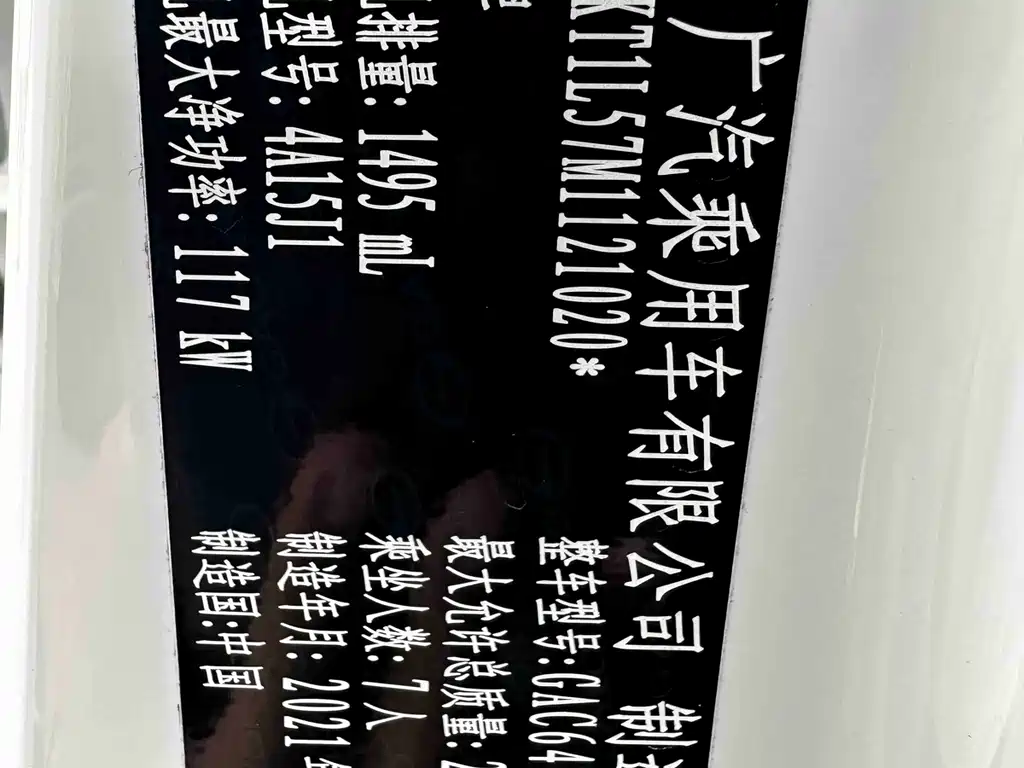 广汽乘用车有限公司 制造
KT1L57M1121020*
整车型号:GAC64
最大允许总质量:2
排量: 1495 mL
乘坐人数: 7人
型号: 4A15J1
制造年月: 2021
最大净功率: 117 kW
制造国:中国